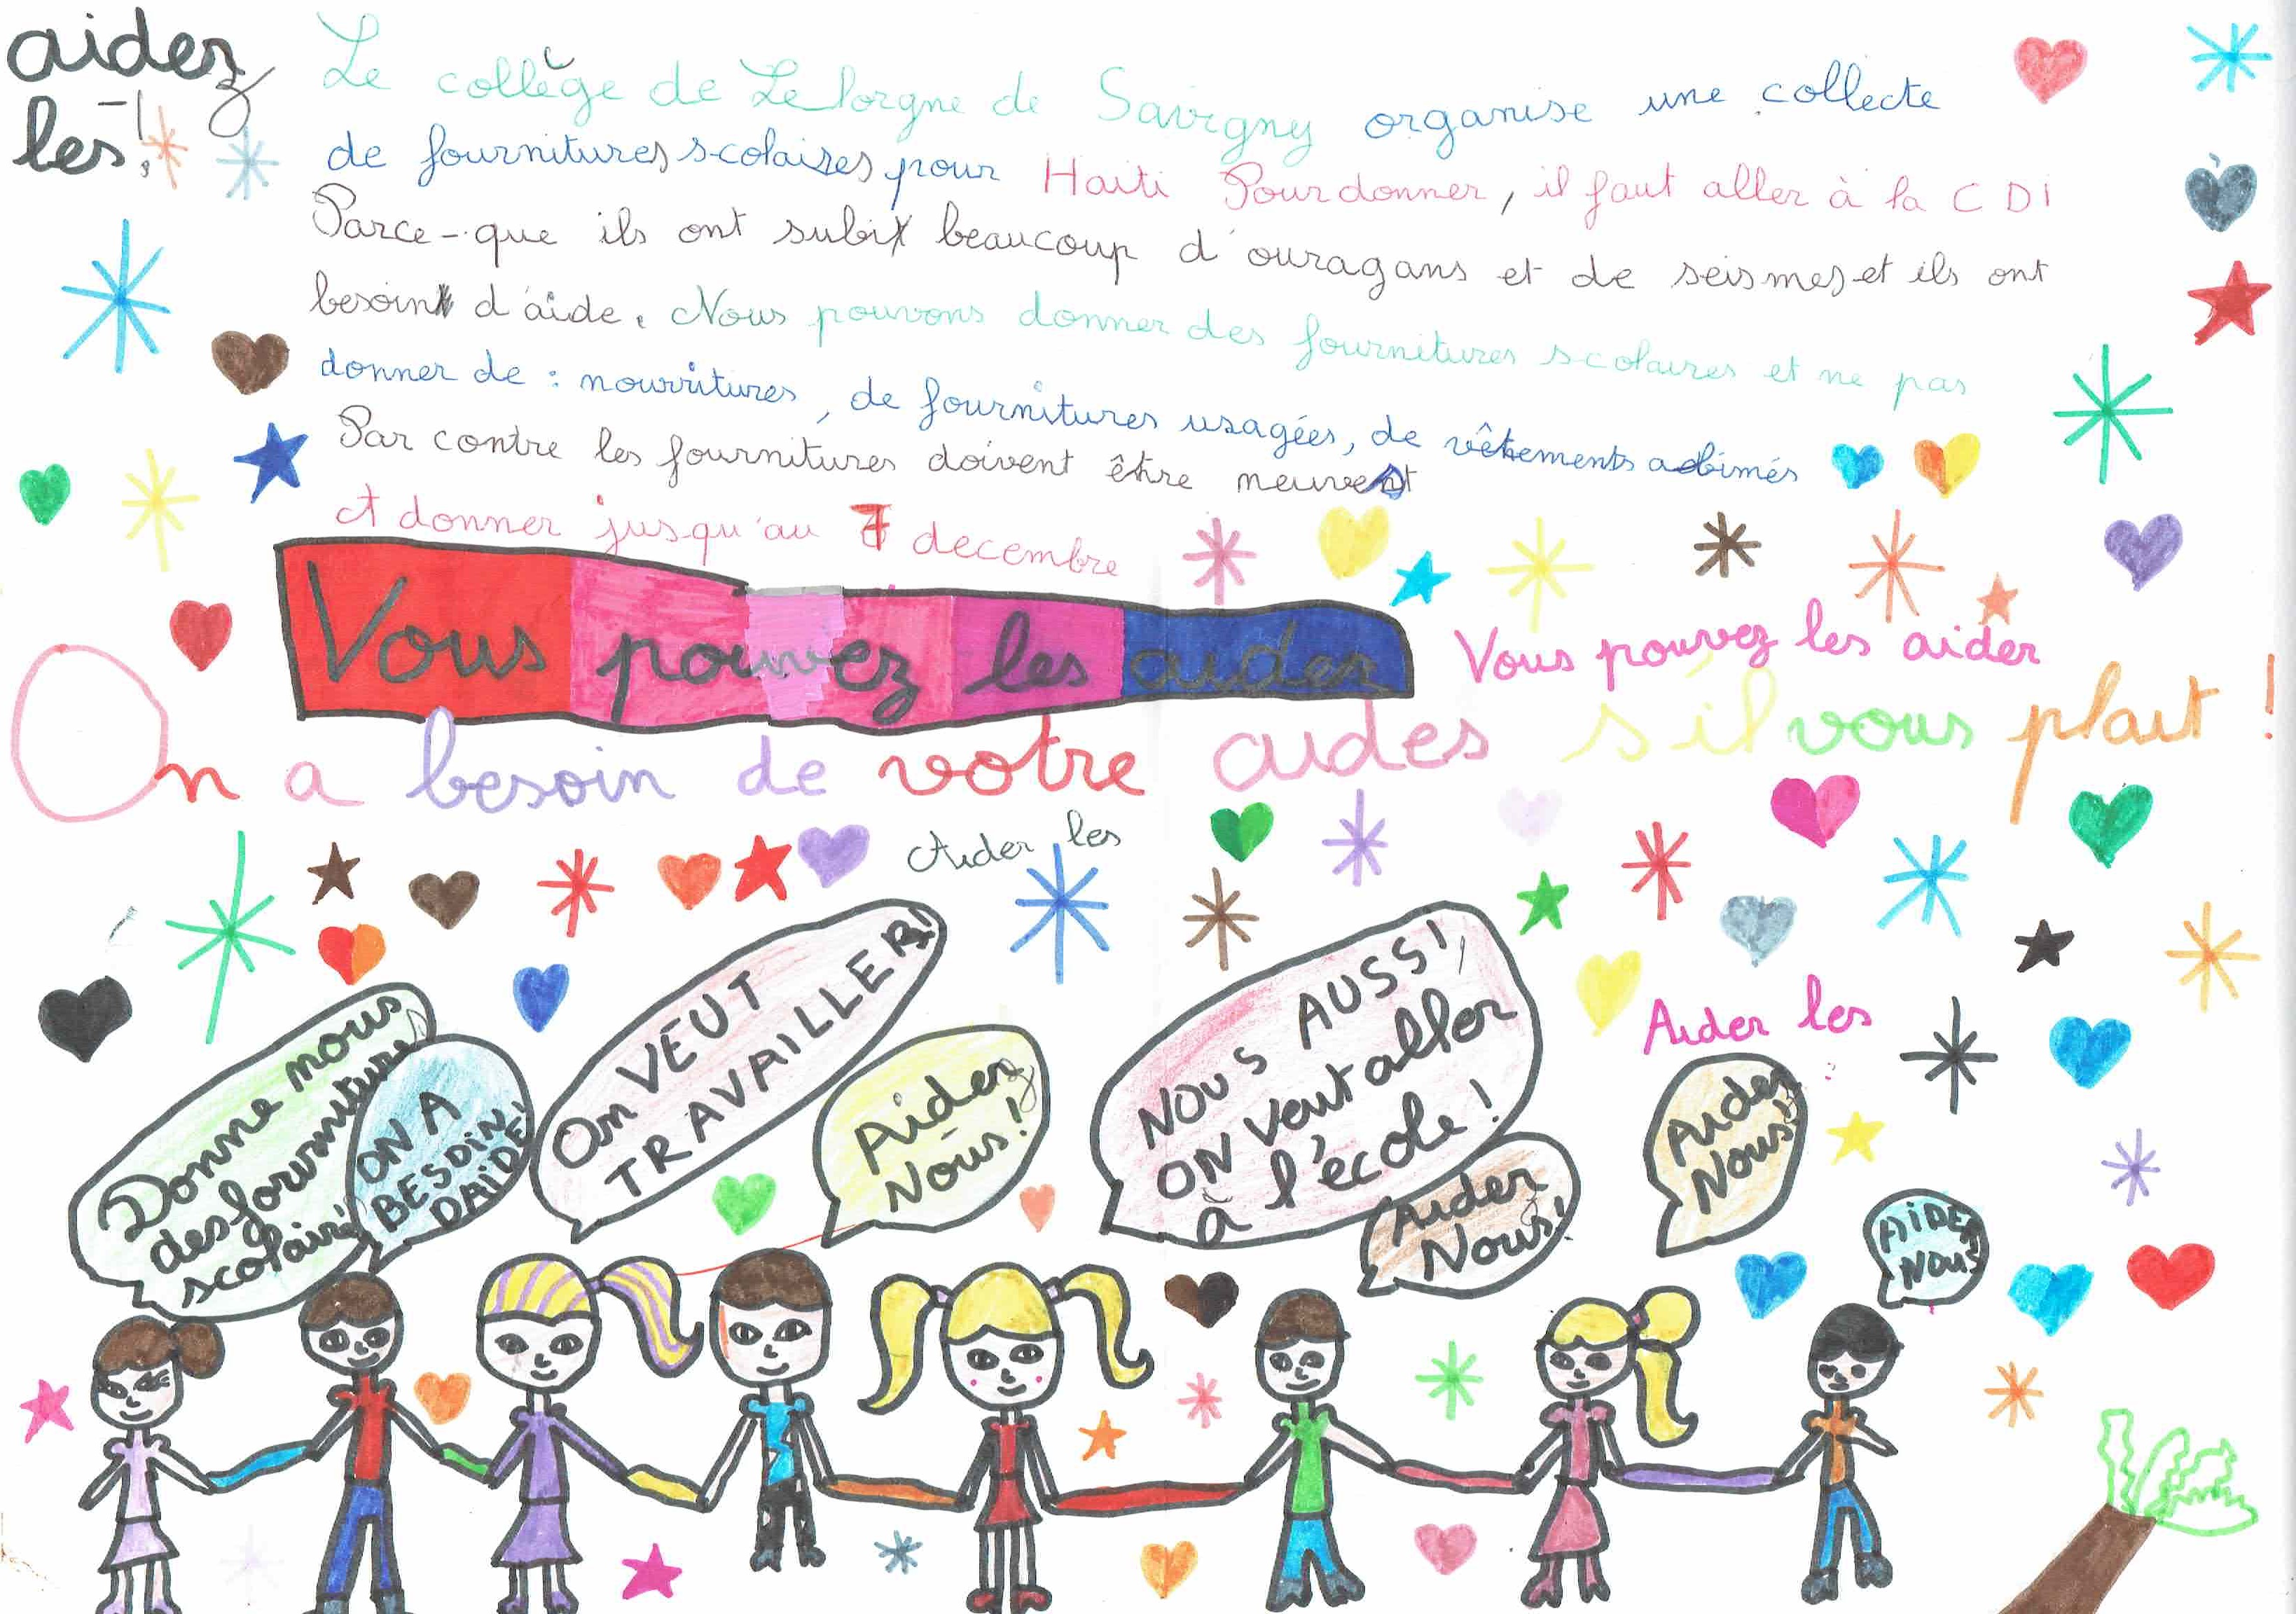 aidez
les !
Le collège de Le lorgne de Savigny organise une collecte
de fournitures scolaires pour Haiti Pour donner, il faut aller à la CDI
Parce-que ils ont subit beaucoup d'ouragans et de seismes et ils ont
besoin d'aide. Nous pouvons donner des fournitures scolaires et ne pas
donner de : nourritures, de fournitures usagées, de vêtements abimés
Par contre les fournitures doivent être neuves
et donner jusqu'au 7 decembre
Vous pouvez les aider
Vous pouvez les aider
On a besoin de votre aides s'il vous plait !
Aider les
Donne nous
des fourniture
scolaire
ON A
BESOIN
DAIDE!
On VEUT
TRAVAILLER!
Aidez
Nous!
NOUS AUSSI,
ON veut aller
à l'école!
Aider
Nous!
Aider les
Aider
Nous!
AIDER
NOUS